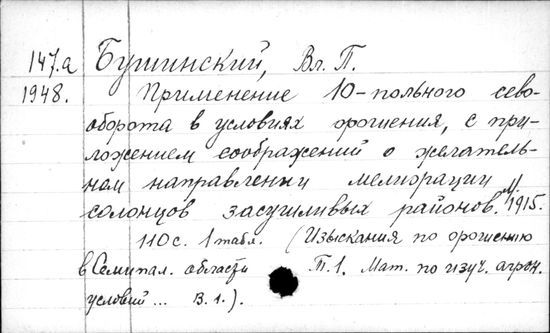 147.а Бушинский, Вл. П.
1948. Применение 10-польного сево-
оборота в условиях орошения, с при-
ложением соображений о желатель-
ном направлении мелиорации
солонцов засушливых районов. М. 1915.
110 с. 1 табл. (Изыскания по орошению
в Семипал. области П. 1. Мат. по изуч. агрон.
условий ... В. 1.).